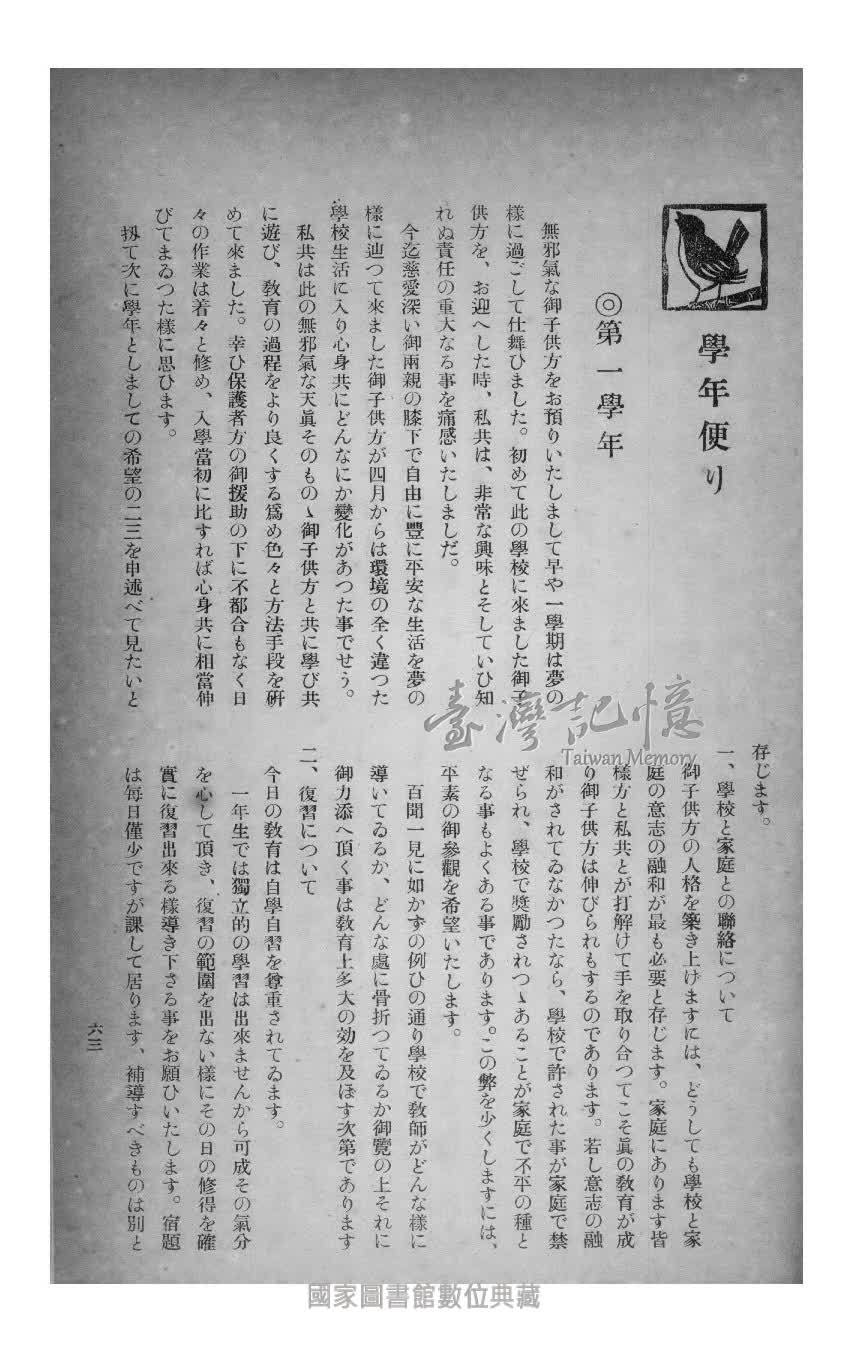 學年便り
◎第一學年
無邪氣な御子供方をお預りいたしまして早や一學期は夢の
樣に過ごして仕舞ひました。初めて此の學校に來ました御子
供方を、お迎へした時、私共は、非常な興味とそしていひ知
れぬ責任の重大なる事を痛感いたしましだ。
今迄慈愛深い御兩親の膝下で自由に豐に平安な生活を夢の
樣に辿つて來ました御子供方が四月からは環境の全く違つた
學校生活に入り心身共にどんなにか變化があつた事でせう。
私共は此の無邪氣な天眞そのものゝ御子供方と共に學び共
に遊び、敎育の過程をより良くする爲め色々と方法手段を硏
めて來ました。幸ひ保護者方の御援助の下に不都合もなく日
々の作業は着々と修め、入學當初に比すれば心身共に相當伸
びてまゐつた樣に思ひます。
扨て次に學年としましての希望の二三を申述べて見たいと
存じます。
一、學校と家庭との聯絡について
御子供方の人格を築き上けますには、どうしても學校と家
庭の意志の融和が最も必要と存じます。家庭にあります皆
樣方と私共とが打解けて手を取り合つてこそ眞の敎育が成
り御子供方は伸びられもするのであります。若し意志の融
和がされてゐなかつたなら、學校で許された事が家庭で禁
ぜられ、學校で奬勵されつゝあることが家庭で不平の種と
なる事もよくある事であります。この弊を少くしますには、
平素の御參觀を希望いたします。
百聞一見に如かずの例ひの通り學校で敎師がどんな樣に
導いてゐるか、どんな處に骨折つてゐるか御覽の上それに
御力添へ頂く事は敎育上多大の効を及ぼす次第であります
二、復習について
今日の敎育は自學自習を尊重されてゐます。
一年生では獨立的の學習は出來ませんから可成その氣分
を心して頂き、復習の範圍を出ない樣にその日の修得を確
實に復習出來る樣導き下さる事をお願ひいたします。宿題
は每日僅少ですが課して居ります、補導すべきものは別と
六三
臺灣記憶
Taiwan Memory
國家圖書館數位典藏